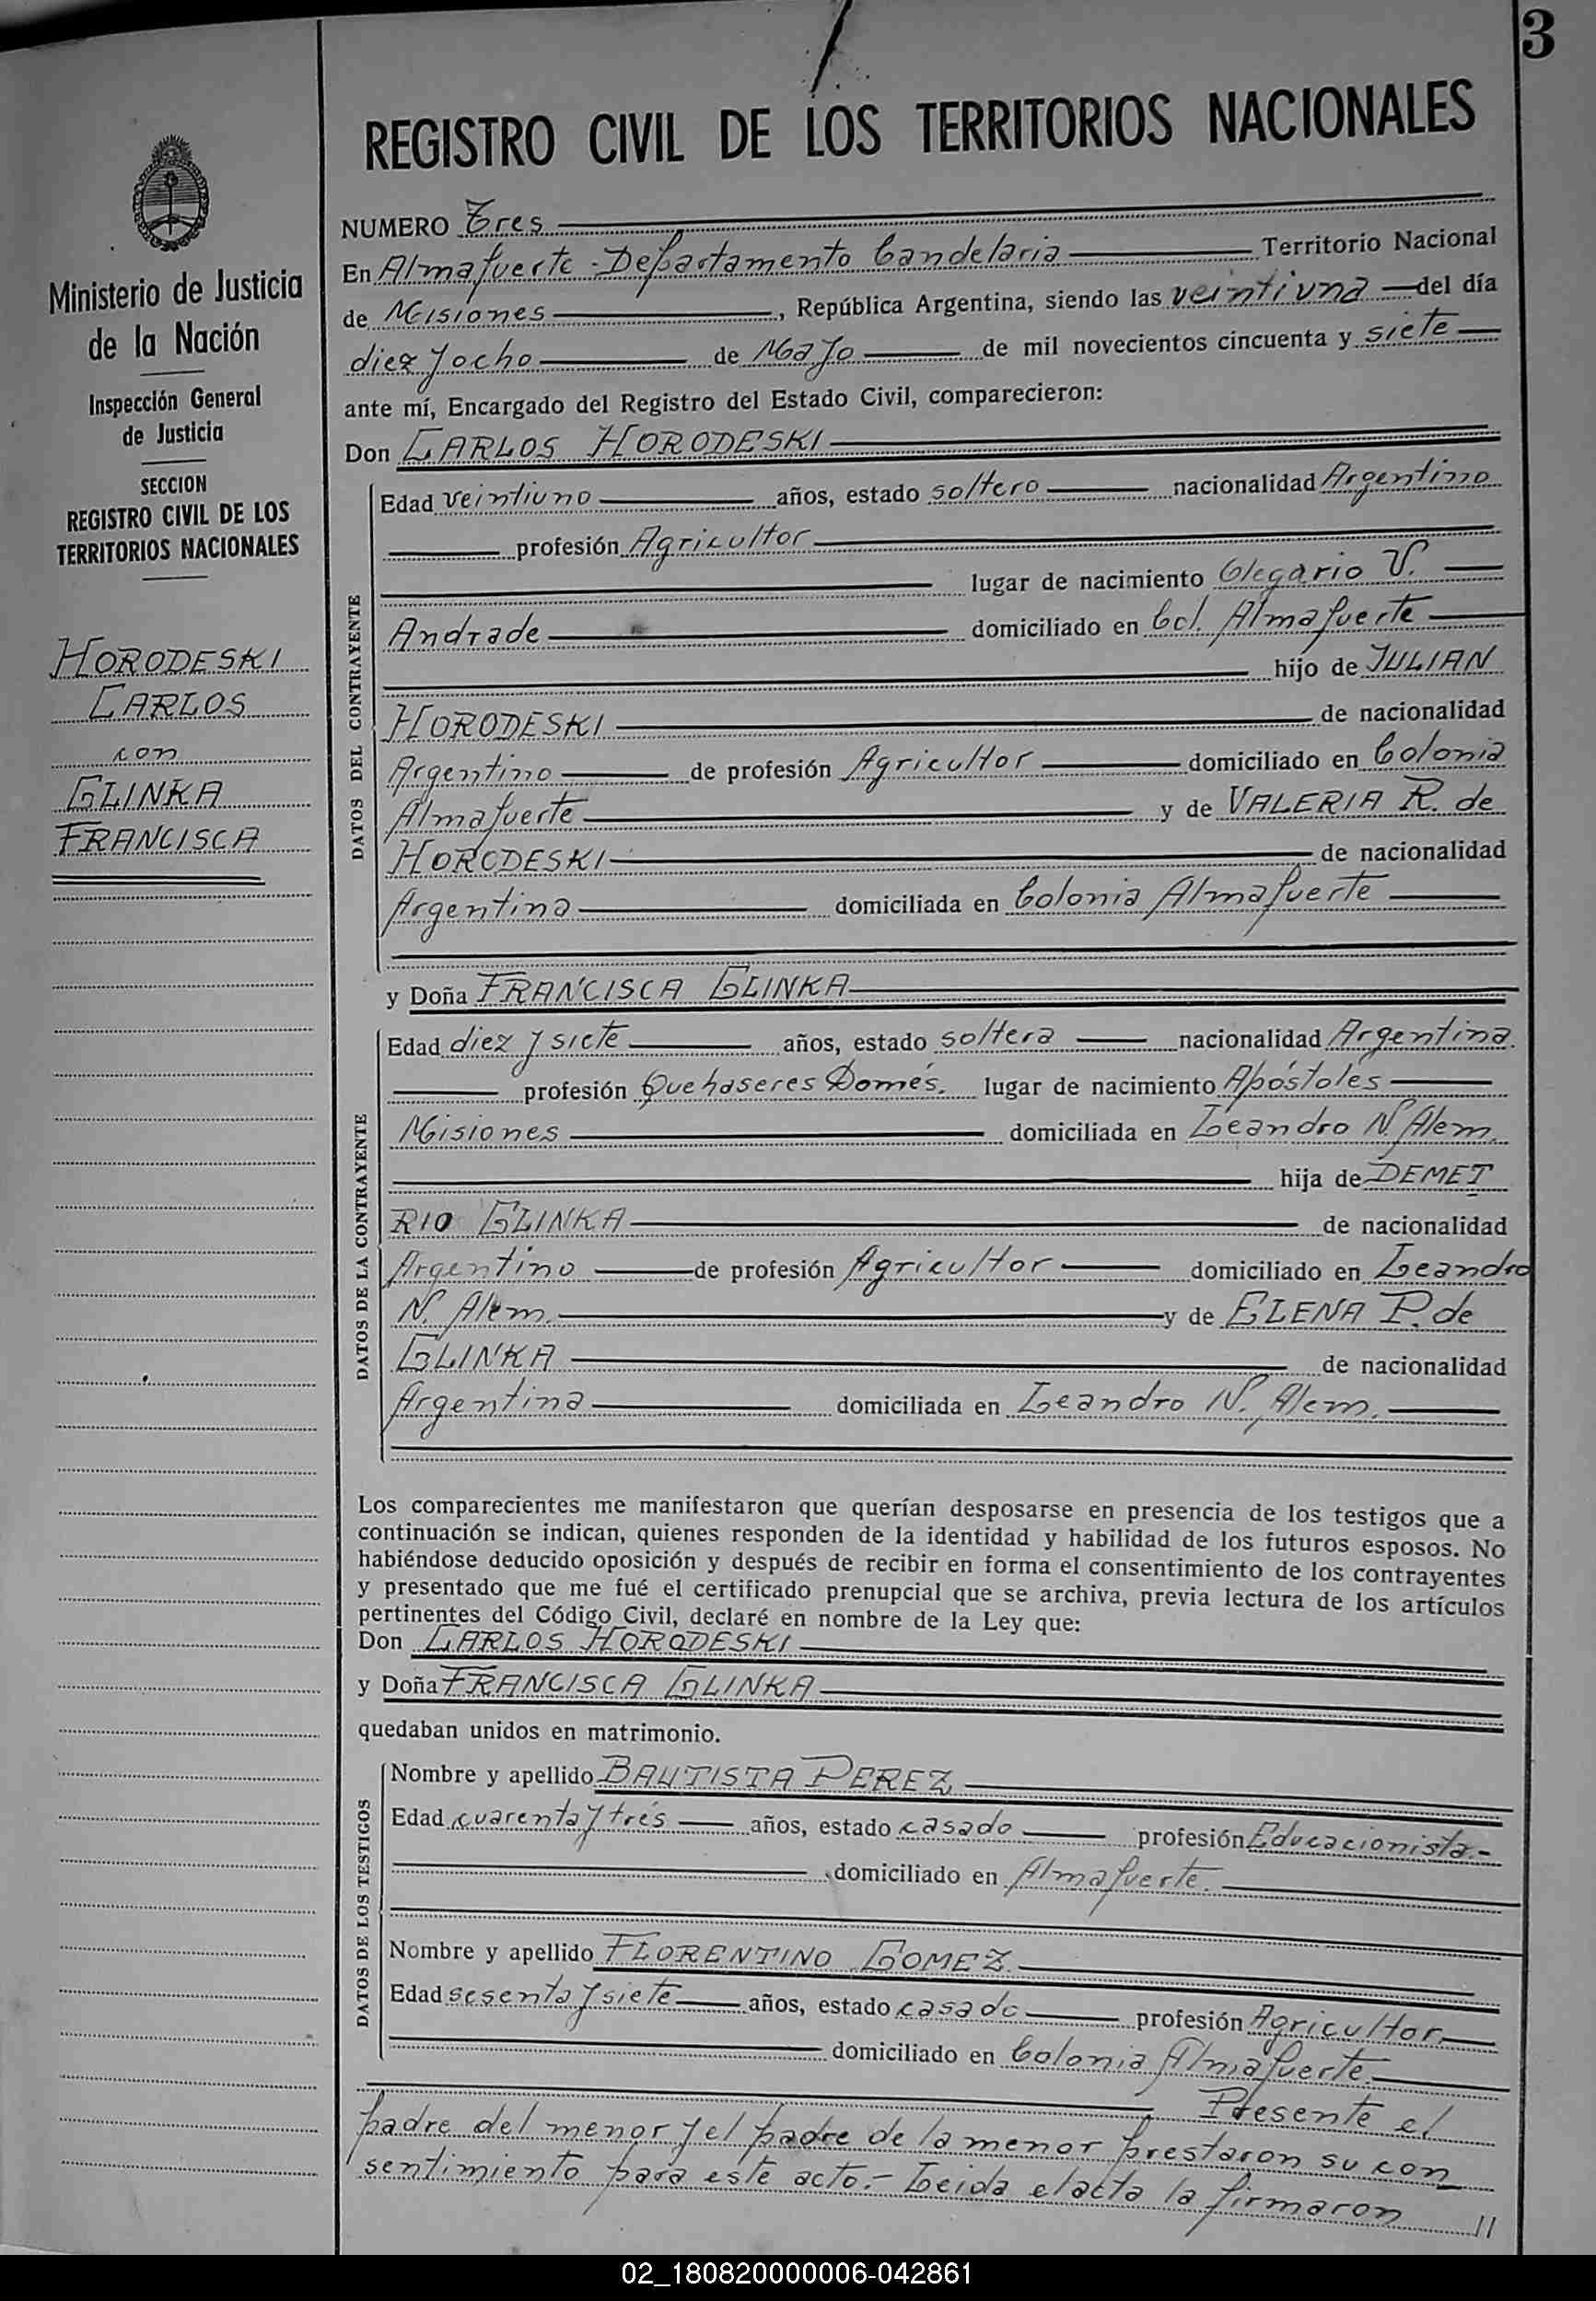 3
REGISTRO CIVIL DE LOS TERRITORIOS NACIONALES
Ministerio de Justicia
de la Nación
Inspección General
de Justicia
SECCION
REGISTRO CIVIL DE LOS
TERRITORIOS NACIONALES
HORODESKI
CARLOS
con
GLINKA
FRANCISCA
NUMERO Tres
En Almafuerte - Departamento Candelaria Territorio Nacional
de Misiones, República Argentina, siendo las veintiuna del día
diez y ocho de Mayo de mil novecientos cincuenta y siete
ante mí, Encargado del Registro del Estado Civil, comparecieron:
Don CARLOS HORODESKI
DATOS DEL CONTRAYENTE
Edad veintiuno años, estado soltero nacionalidad Argentino
profesión Agricultor
lugar de nacimiento Olegario V.
Andrade domiciliado en Col. Almafuerte
hijo de JULIAN
HORODESKI de nacionalidad
Argentino de profesión Agricultor domiciliado en Colonia
Almafuerte y de VALERIA R. de
HORODESKI de nacionalidad
Argentina domiciliada en Colonia Almafuerte
y Doña FRANCISCA GLINKA
DATOS DE LA CONTRAYENTE
Edad diez y siete años, estado soltera nacionalidad Argentina.
profesión Quehaseres Domés. lugar de nacimiento Apóstoles
Misiones domiciliada en Leandro N. Alem.
hija de DEMET
RIO GLINKA de nacionalidad
Argentino de profesión Agricultor domiciliado en Leandro
N. Alem. y de ELENA P. de
GLINKA de nacionalidad
Argentina domiciliada en Leandro N. Alem.
Los comparecientes me manifestaron que querían desposarse en presencia de los testigos que a
continuación se indican, quienes responden de la identidad y habilidad de los futuros esposos. No
habiéndose deducido oposición y después de recibir en forma el consentimiento de los contrayentes
y presentado que me fué el certificado prenupcial que se archiva, previa lectura de los artículos
pertinentes del Código Civil, declaré en nombre de la Ley que:
Don CARLOS HORODESKI
y Doña FRANCISCA GLINKA
quedaban unidos en matrimonio.
DATOS DE LOS TESTIGOS
Nombre y apellido BAUTISTA PEREZ
Edad cuarenta y trés años, estado casado profesión Educacionista.-
domiciliado en Almafuerte.
Nombre y apellido FLORENTINO GOMEZ.
Edad sesenta y siete años, estado casado profesión Agricultor
domiciliado en Colonia Almafuerte.
Presente el
padre del menor y el padre de la menor prestaron su con
sentimiento para este acto.- Leida el acta la firmaron //
02_180820000006-042861